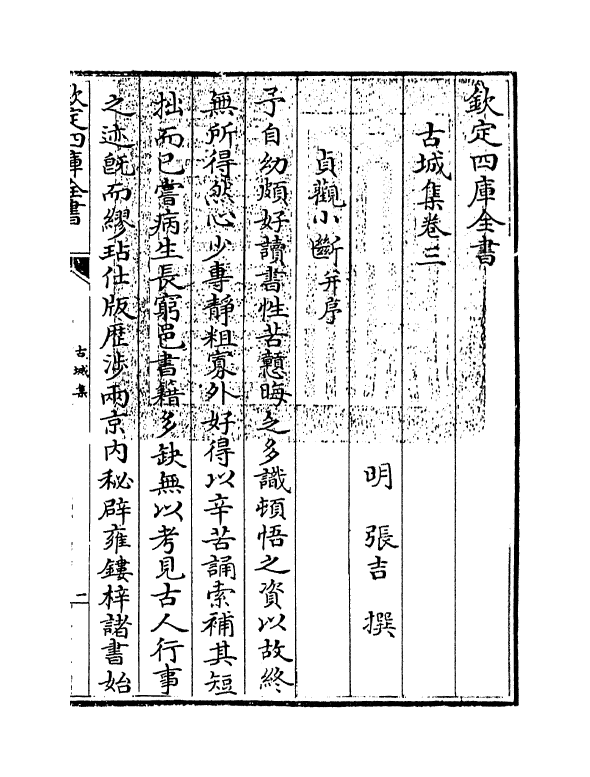 欽定四庫全書
古城集卷三
明 張吉 撰
貞觀小斷并序
予自幼頗好讀書性苦戅晦乏多識頓悟之資以故終
無所得然心少專靜粗寡外好得以辛苦誦索補其短
拙而已嘗病生長窮邑書籍多缺無以考見古人行事
之迹旣而繆玷仕版歴涉兩京内秘辟雍鏤梓諸書始
欽定四庫全書
古城集